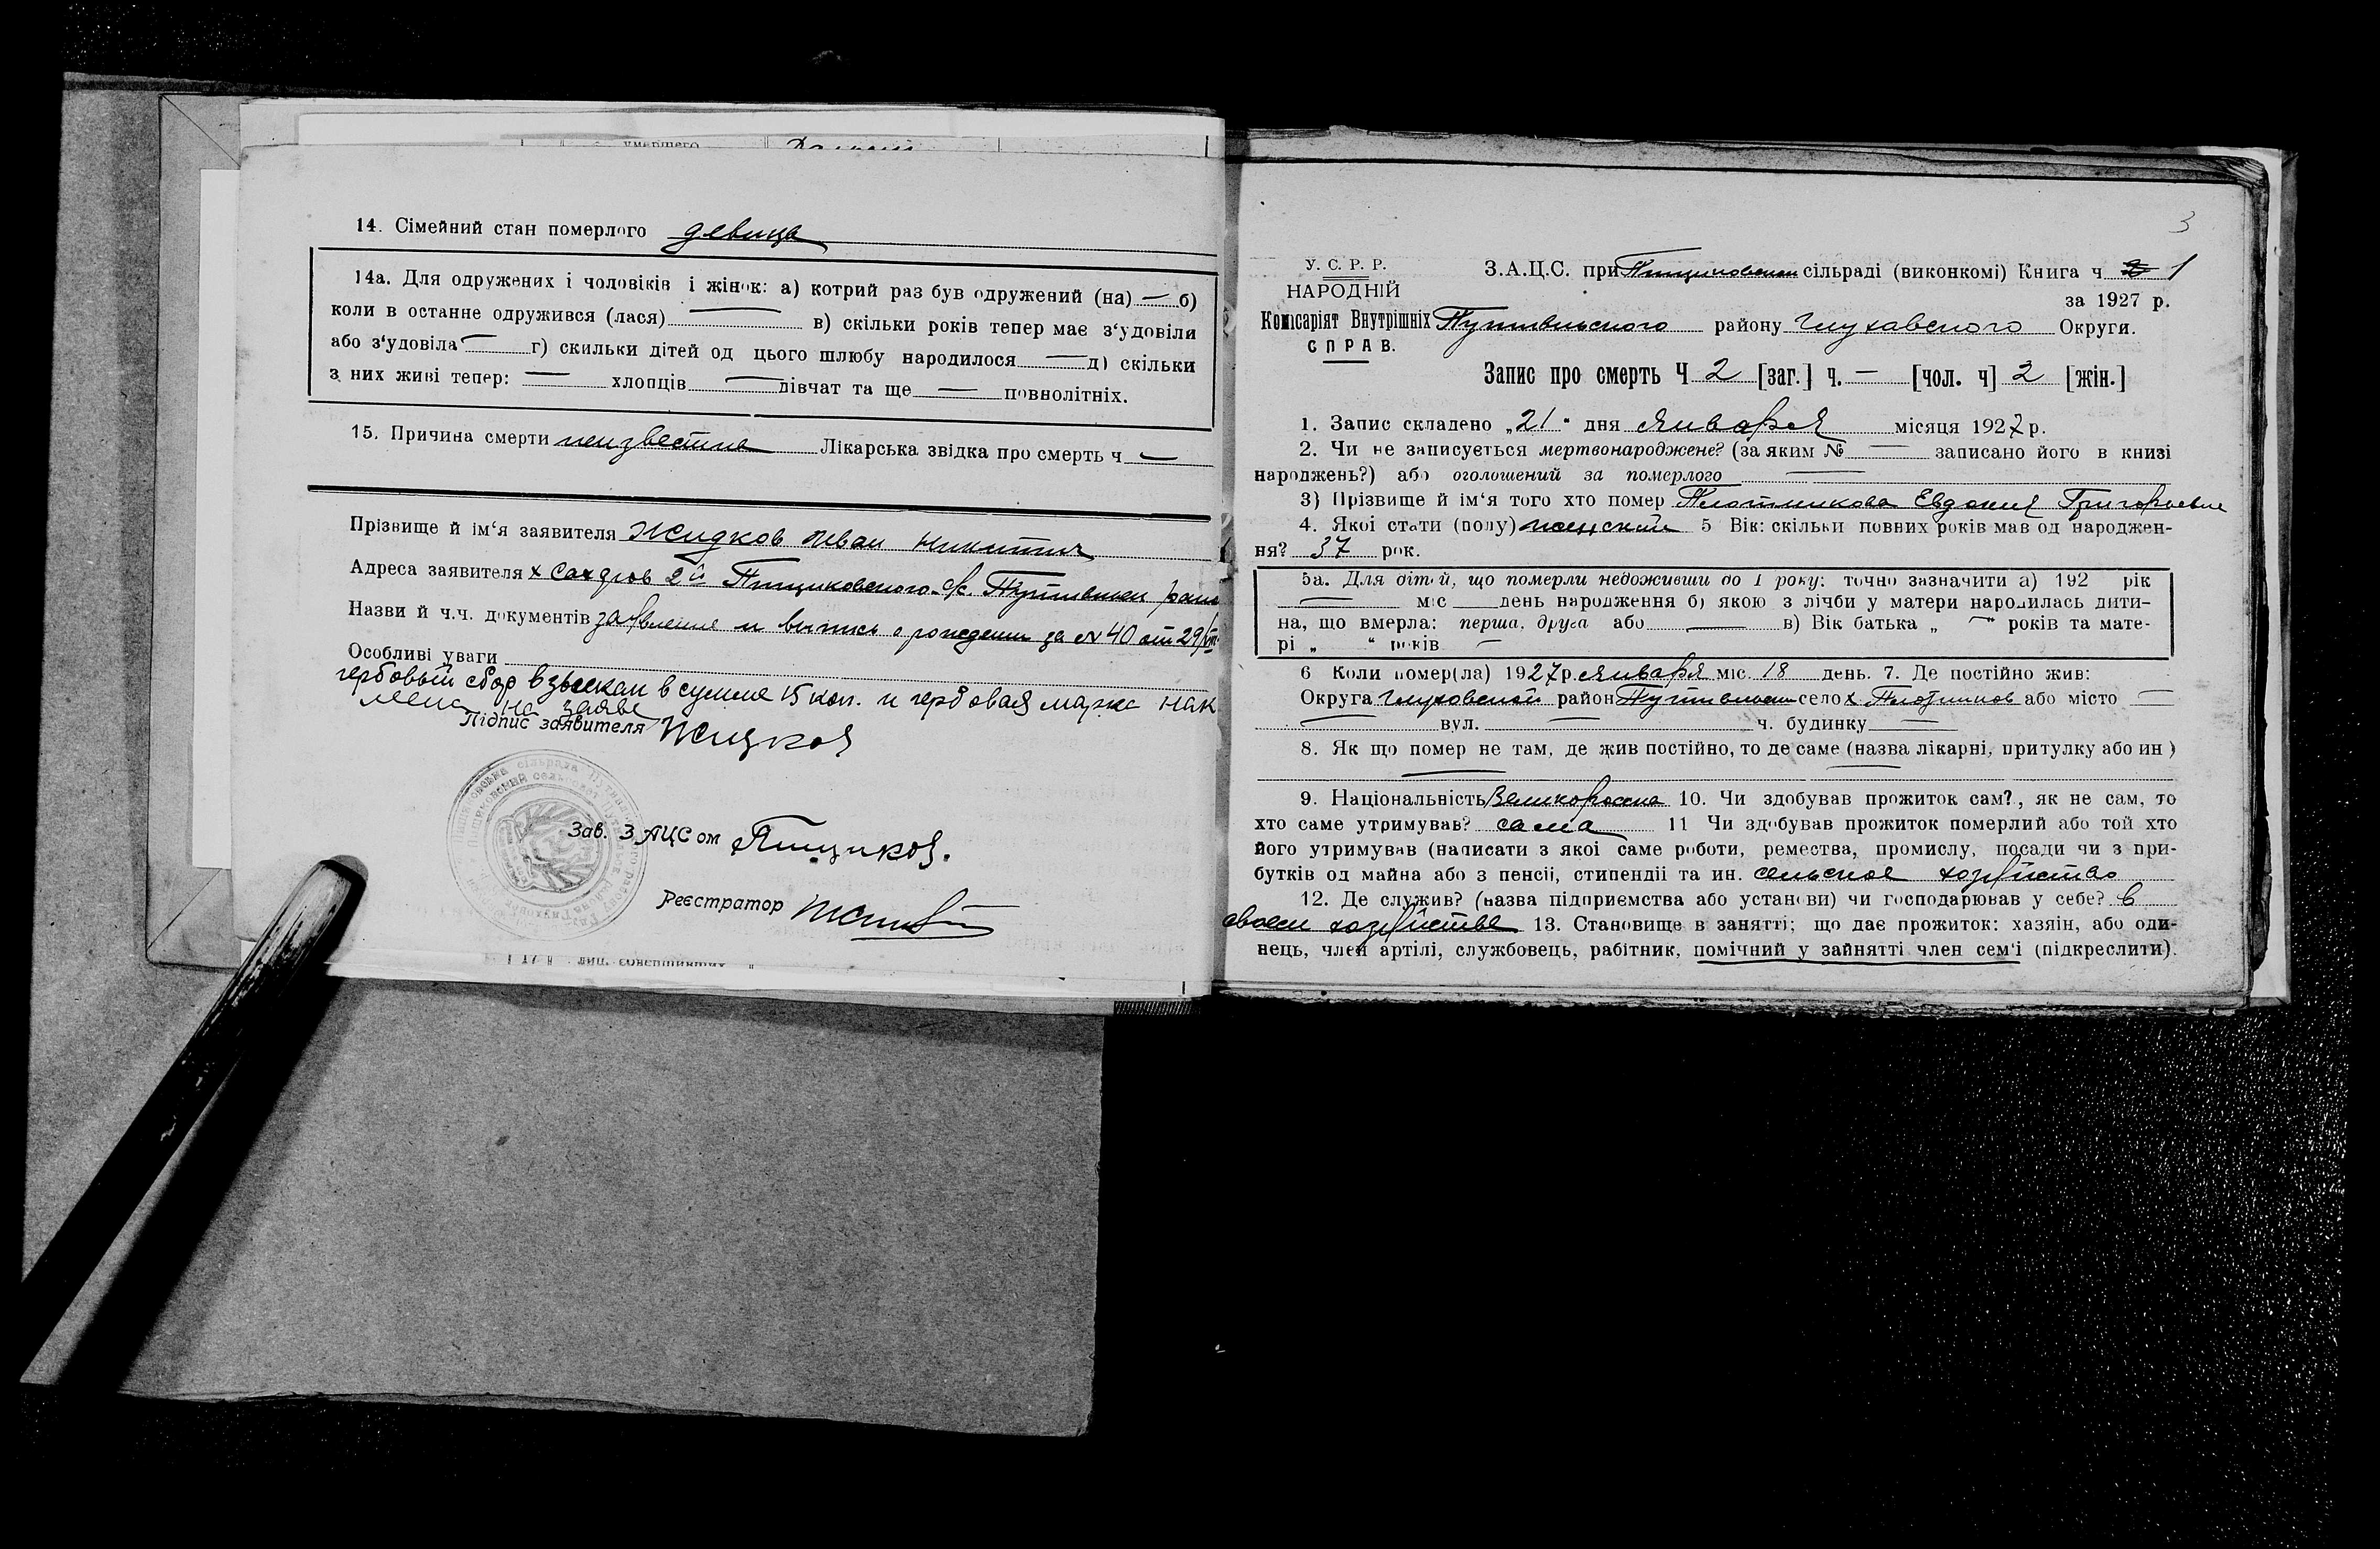 умершего
14. Сімейний стан померлого девица
14а. Для одружених і чоловіків і жінок: а) котрий раз був одружений (на) — б)
коли в останне одружився (лася) — в) скільки років тепер має з‘удовіли
або з‘удовіла — г) скильки дітей од цього шлюбу народилося — д) скільки
з них живі тепер: — хлопців — дівчат та ще — повнолітніх.
15. Причина смерти неизвестна Лікарська звідка про смерть ч —
Прізвище й ім‘я заявителя Жидков Иван Никитич
Адреса заявителя х Сахдров 2й Пищиковского с/с. Путивльск
Назви й ч.ч. документів заявление и выпись о рождении за № 40 от 29/
Особливі уваги
гербовый сбор взыскан в сумме 15 коп. и гербовая марка нак
леена на заяве
Підпис заявителя Жидков
Зав. ЗАЦСом Пищиков.
Реєстратор
лиц, совершивших
3
У. С. Р. Р.
НАРОДНІЙ
Комісаріят Внутрішніх
СПРАВ.
З.А.Ц.С. при Пищиковском сільраді (виконкомі) Книга ч 1
за 1927 р.
Путивльского району Глуховского Округи.
Запис про смерть Ч 2 [заг.] ч. — [чол. ч] 2 [жін.]
1. Запис складено „21“ дня Января місяця 1927 р.
2. Чи не записується мертвонароджене? (за яким № — записано його в книзі
народжень?) або оголошений за померлого —
3) Прізвище й ім‘я того хто помер Плотникова Евдокия Григорьевна
4. Якоі стати (полу) женский 5 Вік: скільки повних років мав од народжен-
ня? 37 рок.
5а. Для дітей, що померли недоживши до 1 року: точно зазначити а) 192 рік
— міс день народження б) якою з лічби у матери народилась дити-
на, що вмерла: перша, друга або — в) Вік батька „ —“ років та мате-
рі „ “ років —
6 Коли помер(ла) 1927 р. Января міс. 18 день. 7. Де постійно жив:
Округа Глуховской район Путивльск село х Плотников або місто —
— вул. — ч. будинку —
8. Як що помер не там, де жив постійно, то де саме (назва лікарні, притулку або ин)
9. Національність Великоросска 10. Чи здобував прожиток сам?, як не сам, то
хто саме утримував? сама 11 Чи здобував прожиток померлий або той хто
його утримував (написати з якоі саме роботи, ремества, промислу, посади чи з при-
бутків од майна або з пенсіі, стипендіі та ин. сельское хозяйство
12. Де служив? (назва підприємства або установи) чи господарював у себе? в
своем хозяйстве 13. Становище в занятті; що дає прожиток: хазяін, або оди-
нець, член артілі, службовець, рабітник, помічний у зайнятті член сем‘і (підкреслити).